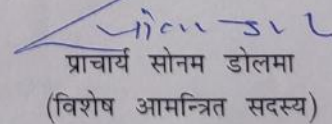 प्राचार्य सोनम डोलमा
(विशेष आमन्त्रित सदस्य)